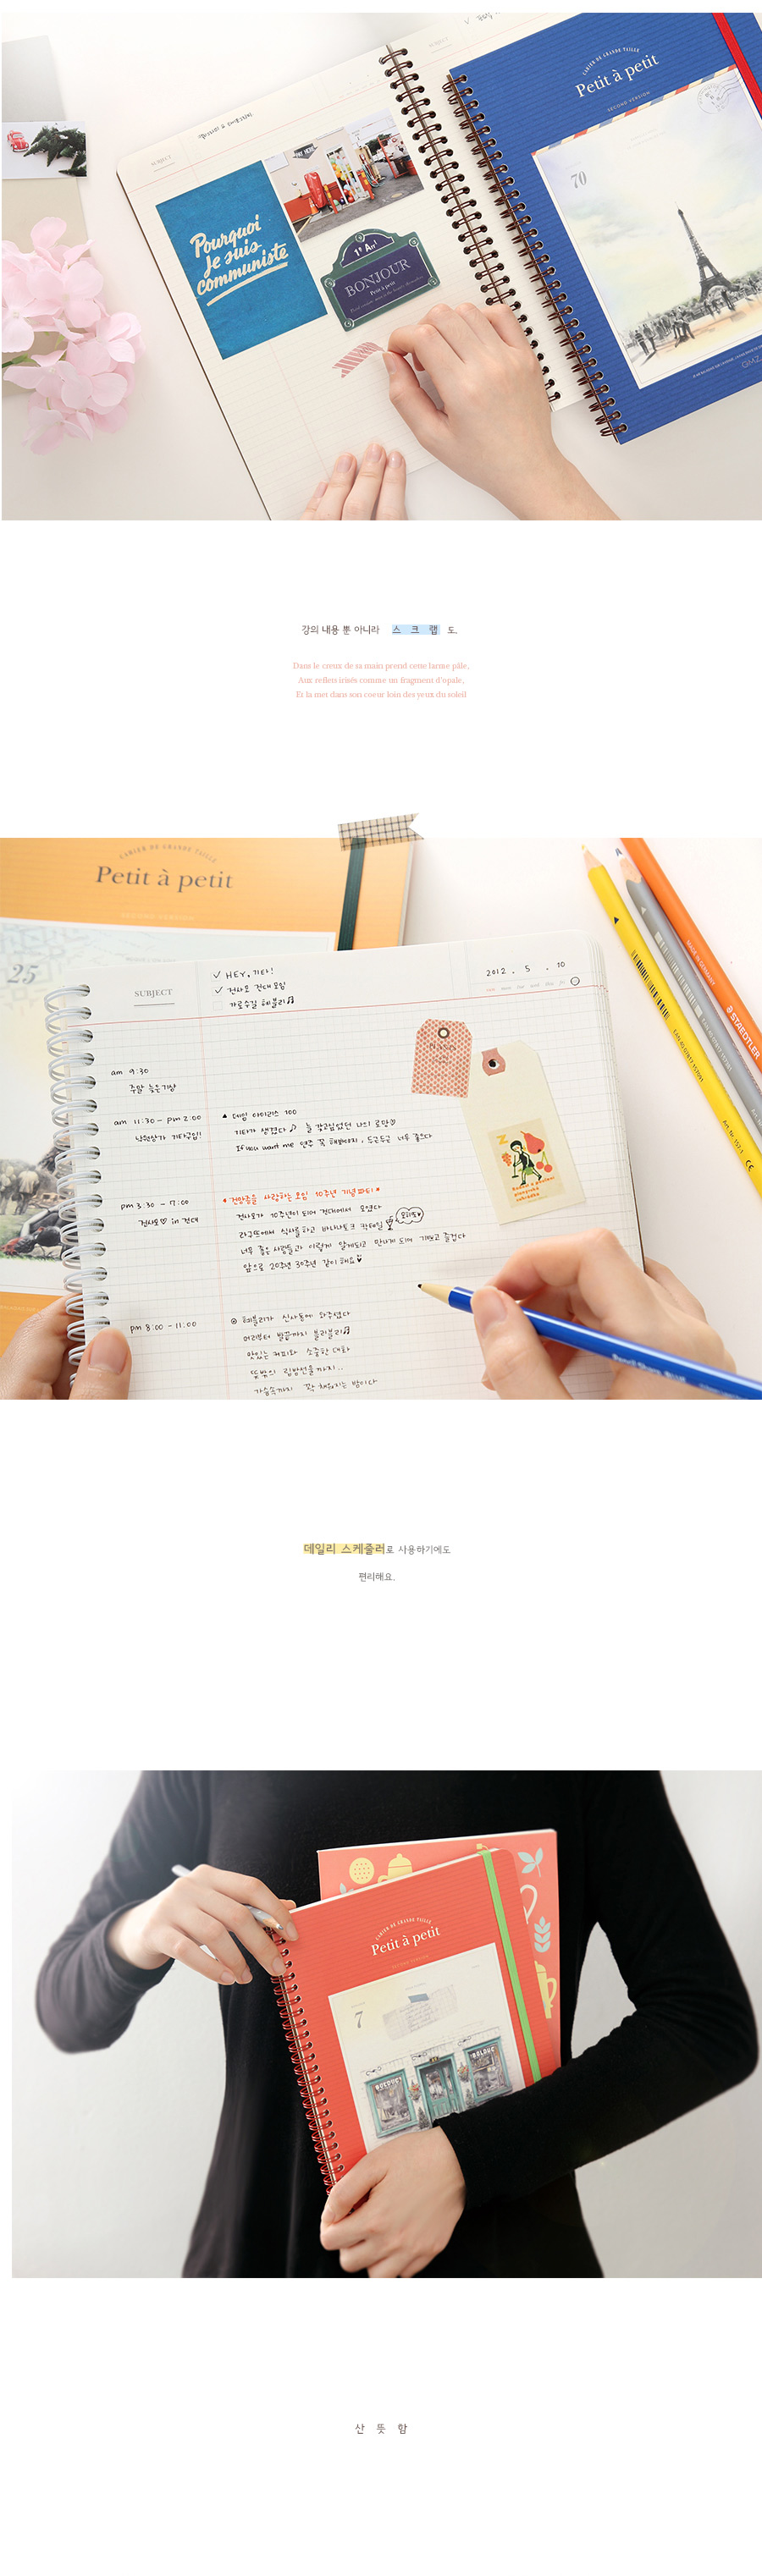 SUBJECT
SUBJECT
Pourquoi
je suis
communiste
1er Arrt
BONJOUR
Petit à petit
CAHIER DE GRANDE TAILLE
Petit à petit
SECOND VERSION
70
강의 내용 뿐 아니라 스 크 랩 도.
Dans le creux de sa main prend cette larme pâle,
Aux reflets irisés comme un fragment d'opale,
Et la met dans son coeur loin des yeux du soleil
CAHIER DE GRANDE TAILLE
Petit à petit
SECOND VERSION
25
SUBJECT
HEY, 기타!
전사모 건대 모임
가로수길 헤블리
2012 . 5 . 10
am 9:30
주말 늦은기상
am 11:30 - pm 2:00
낙원상가 기타구입!!
▲ 데임 아이리스 100
기타가 생겼다♪ 늘 갖고싶었던 나의 로망♡
If you want me 연주 꼭 해봐야지, 두근두근 너무 좋으다
pm 3:30 - 7:00
전사모♡ in 건대
10주년 기념 파티
전사모가 10주년이 되어 건대에서 모였다
너무 좋은 사람들과 이렇게 알게되고 만나게 되어 기쁘고 즐겁다
앞으로 20주년 30주년 같이 해요♥
pm 8:00 - 11:00
◎ 헤블리가 신사동에 와주셨다
머리부터 발끝까지 블리블리
맛있는 커피와 소중한 대화
뜻밖의 립밤선물까지..
가슴속까지 꽉 채워지는 밤이다
MADE IN GERMANY
STAEDTLER
데일리 스케줄러로 사용하기에도
편리해요.
CAHIER DE GRANDE TAILLE
Petit à petit
SECOND VERSION
7
BOLDUC
BOLDUC
산 뜻 함